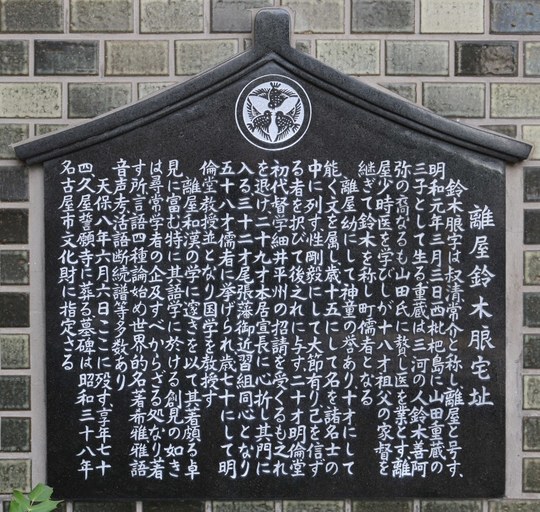 離屋鈴木朖宅址
鈴木朖字は叔清常介と称し離屋と号す、
明和元年三月三日西枇杷島に山田重蔵の
三子として生る重蔵は三河の人鈴木喜阿
弥の裔なるも山田氏に贅し医を業とす、離
屋少時医を学びしが十八才祖父の家督を
継ぎて鈴木を称し町儒者となる
離屋幼にして神童の誉あり十才にして
能く文を属し歳十五にして名を諸名士の
中に列す、性剛毅にして大節有り己を信ず
る者を択びて後之れに与す、二十才明倫堂
初代督学細井平州の招請を受くるも之れ
を退け二十九才本居宣長に心折し其門に
入る、三十二才尾張藩御近習組同心となり
五十八才儒者に挙げられ歳七十にして明
倫堂教授並となり国学を教授す
離屋和漢の学に邃きを以て其著頗る卓
見に富む特に其語学に於ける創見の如き
は尋常学者の企及すべからざる処なり著
す所言語四種論始め世界的名著希雅雅語
音声考活語断続譜等多数あり
天保八年六月六日ここに殁す、享年七十
四久屋誓願寺に葬る墓碑は昭和三十八年
名古屋市文化財に指定さる